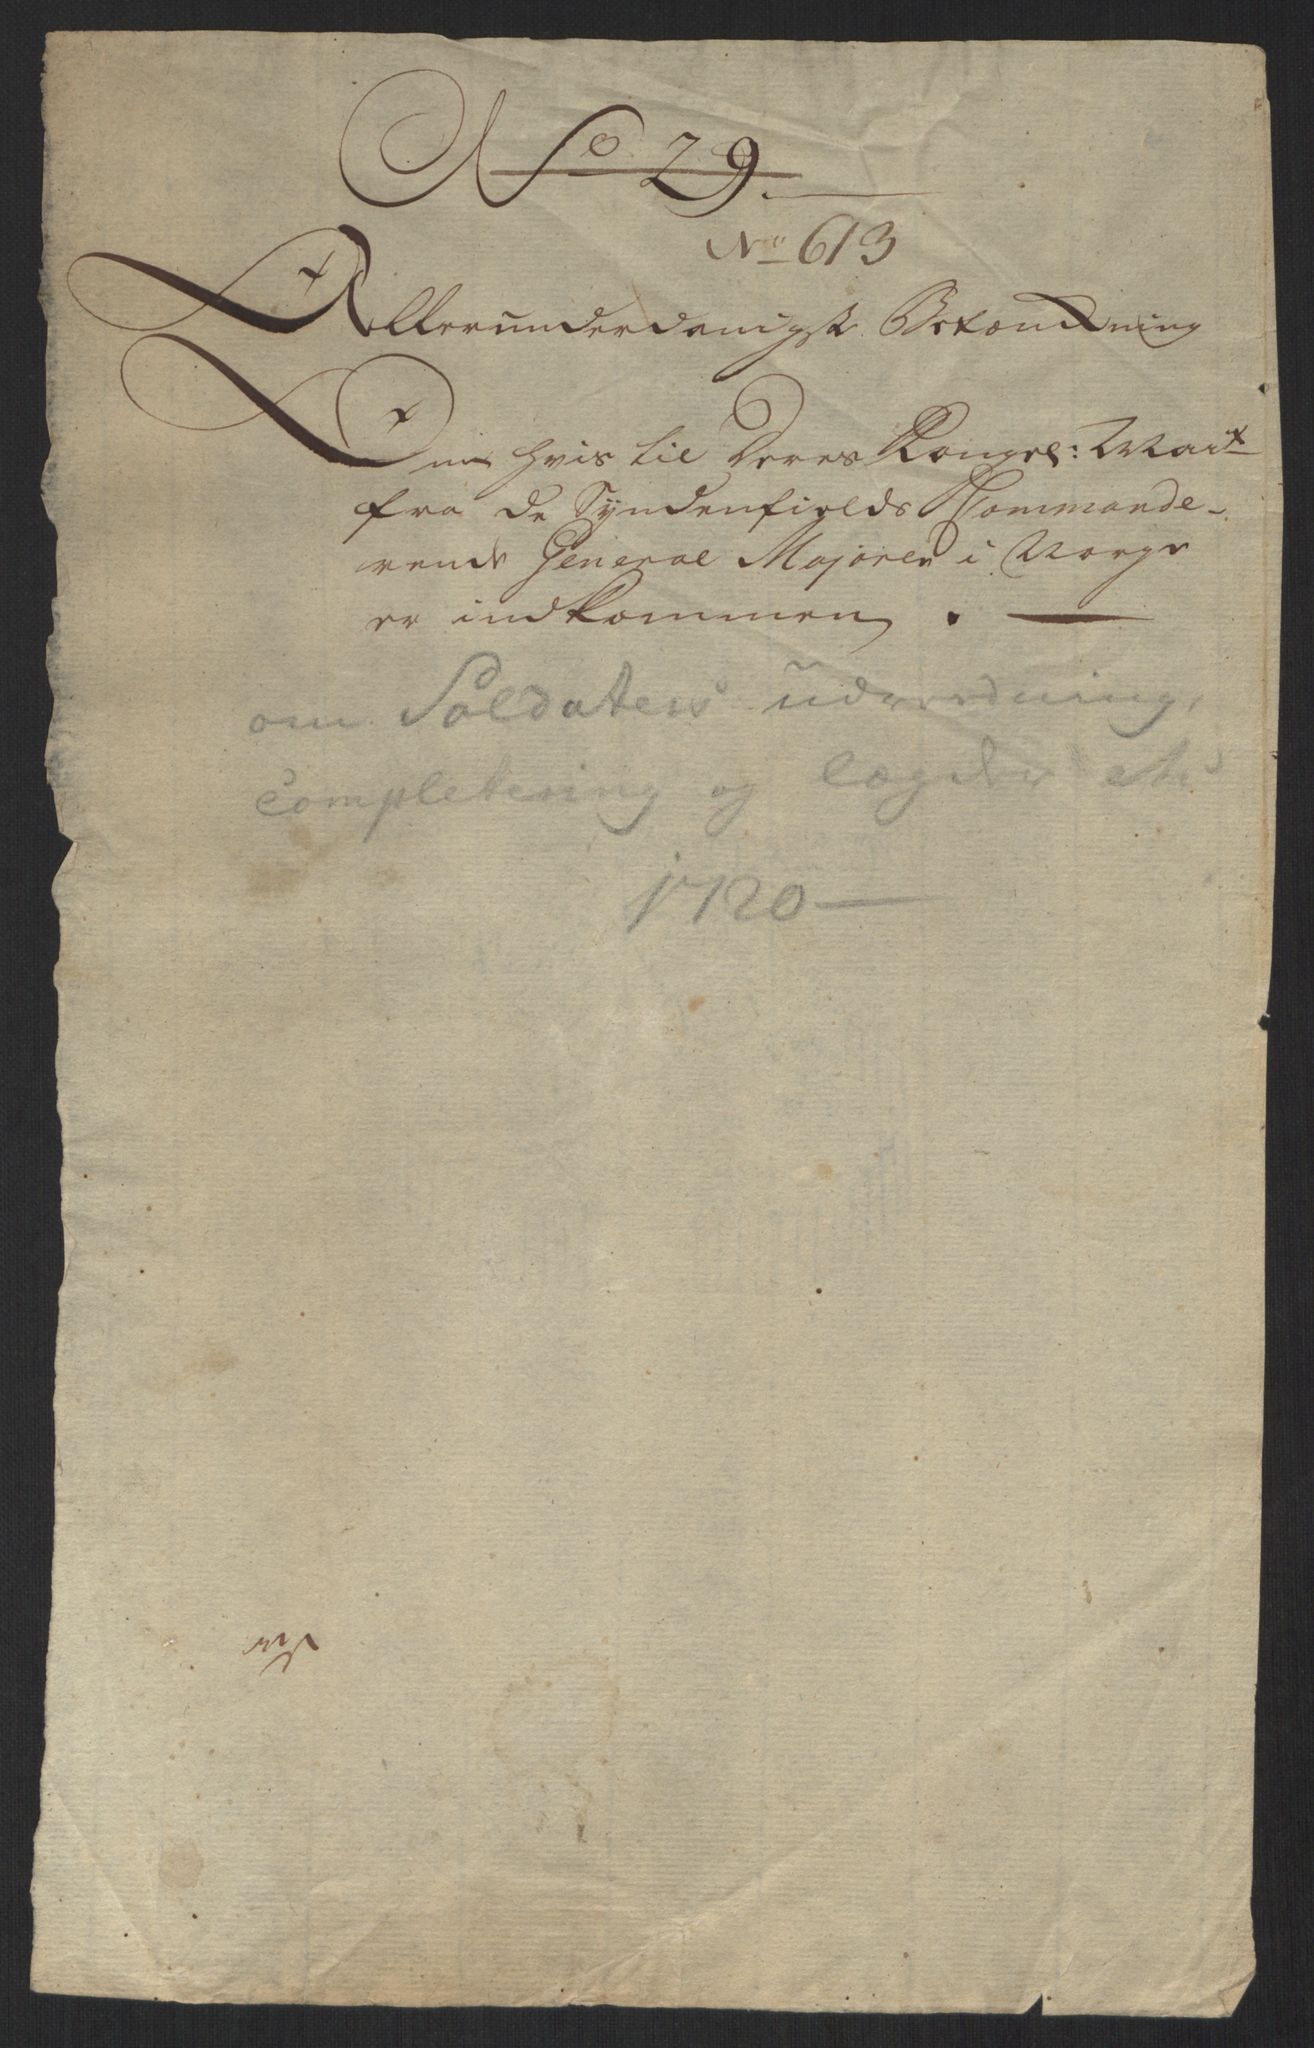 No 29.
No 613
Allerunderdanigst Betænckning
Om hvis til Deres Kongel: Maitt
fra de Syndenfields Commande-
rende General Majorer i Norge
er indkommen.
om Soldaters udreedning,
completering og lægder etc
1720